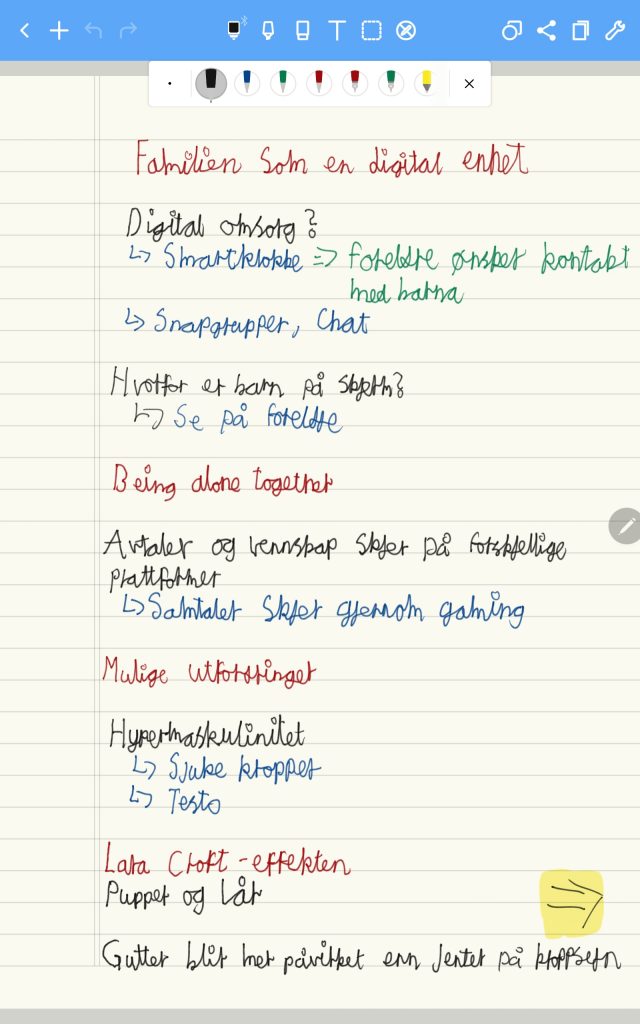 Familien som en digital enhet
Digital omsorg?
↳ Smartklokke => foreldre ønsker kontakt
med barna
↳ Snapgrupper, Chat
Hvorfor er barn på skjerm?
↳ Se på foreldre
Being alone together
Avtaler og vennskap skjer på forskjellige
plattformer
↳ Samtaler skjer gjennom gaming
Mulige utfordringer
Hypermaskulinitet
↳ Sjuke kropper
↳ Testo
Lara Croft-effekten
Pupper og Lår
Gutter blir mer påvirket enn Jenter på kroppsefn